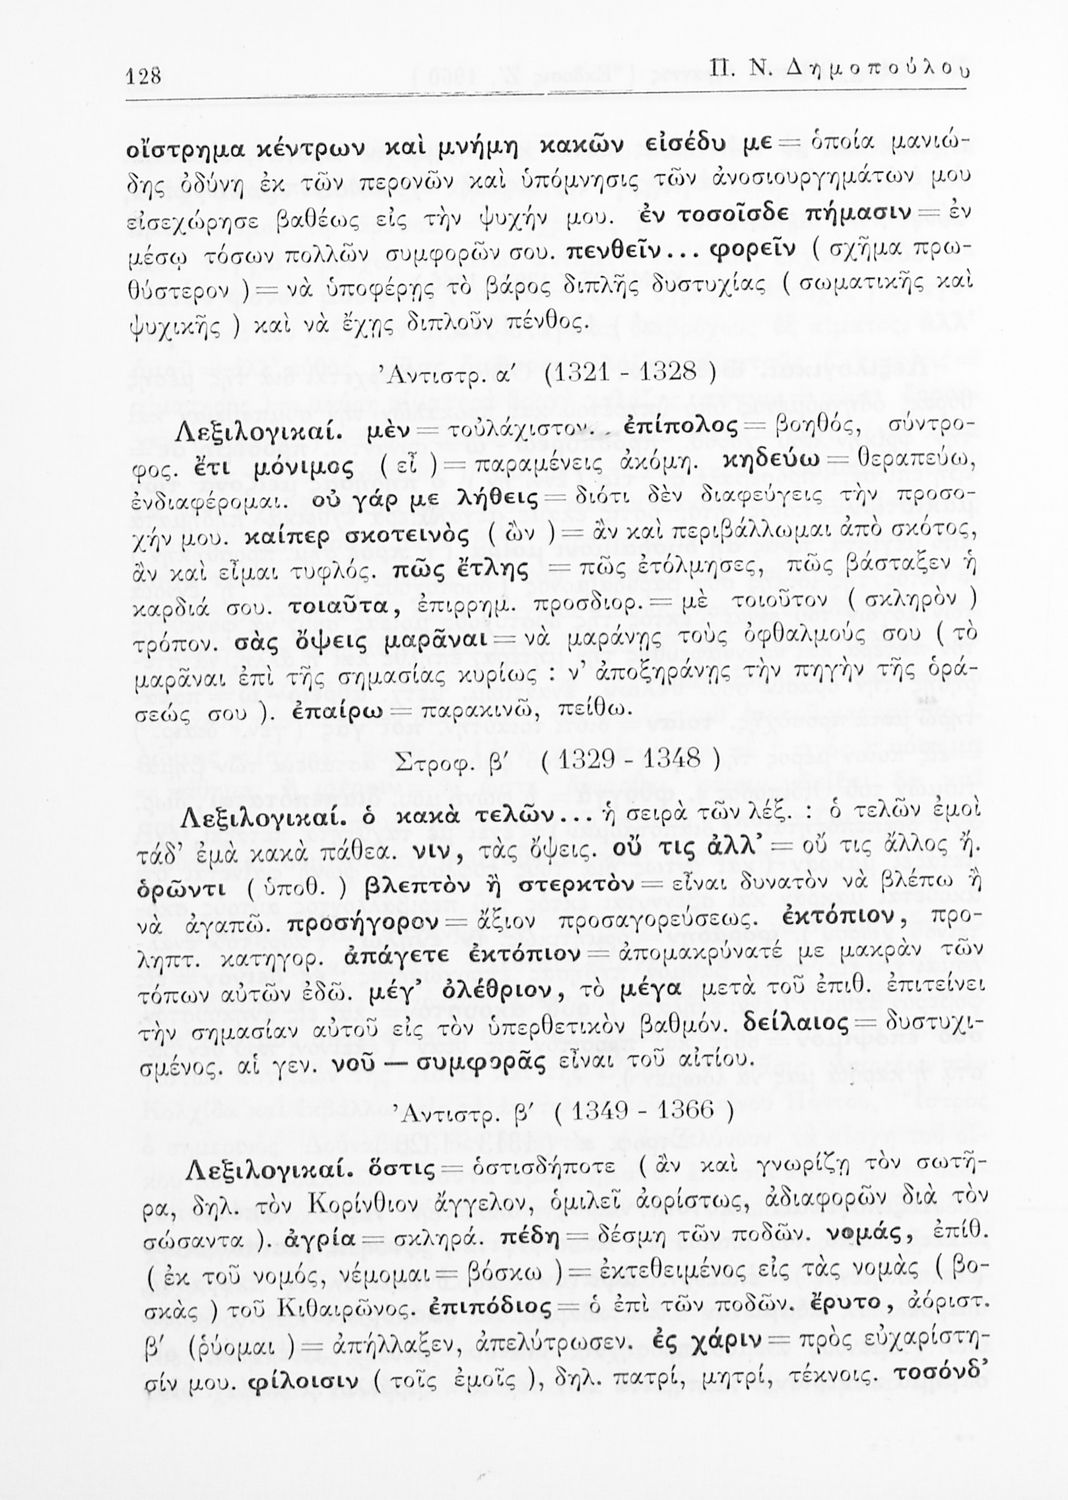 128
Π. Ν. Δημοπούλου
οἴστρημα κέντρων καὶ μνήμη κακῶν εἰσέδυ με = ὁποία μανιώ-
δης ὀδύνη ἐκ τῶν περονῶν καὶ ὑπόμνησις τῶν ἀνοσιουργημάτων μου
εἰσεχώρησε βαθέως εἰς τὴν ψυχήν μου. ἐν τοσοῖσδε πήμασιν = ἐν
μέσῳ τόσων πολλῶν συμφορῶν σου. πενθεῖν... φορεῖν ( σχῆμα πρω-
θύστερον ) = νὰ ὑποφέρῃς τὸ βάρος διπλῆς δυστυχίας ( σωματικῆς καὶ
ψυχικῆς ) καὶ νὰ ἔχῃς διπλοῦν πένθος.
Ἀντιστρ. α′ (1321 - 1328 )
Λεξιλογικαί. μὲν = τοὐλάχιστον. . ἐπίπολος = βοηθός, σύντρο-
φος. ἔτι μόνιμος ( εἶ ) = παραμένεις ἀκόμη. κηδεύω = θεραπεύω,
ἐνδιαφέρομαι. οὐ γάρ με λήθεις = διότι δὲν διαφεύγεις τὴν προσο-
χήν μου. καίπερ σκοτεινὸς ( ὢν ) = ἂν καὶ περιβάλλωμαι ἀπὸ σκότος,
ἂν καὶ εἶμαι τυφλός. πῶς ἔτλης = πῶς ἐτόλμησες, πῶς βάσταξεν ἡ
καρδιά σου. τοιαῦτα, ἐπιρρημ. προσδιορ. = μὲ τοιοῦτον ( σκληρὸν )
τρόπον. σὰς ὄψεις μαρᾶναι = νὰ μαράνῃς τοὺς ὀφθαλμούς σου ( τὸ
μαρᾶναι ἐπὶ τῆς σημασίας κυρίως : ν' ἀποξηράνῃς τὴν πηγὴν τῆς ὁρά-
σεώς σου ). ἐπαίρω = παρακινῶ, πείθω.
Στροφ. β′ ( 1329 - 1348 )
Λεξιλογικαί. ὁ κακὰ τελῶν... ἡ σειρὰ τῶν λέξ. : ὁ τελῶν ἐμοὶ
τάδ' ἐμὰ κακὰ πάθεα. νιν, τὰς ὄψεις. οὔ τις ἀλλ' = οὔ τις ἄλλος ἤ.
ὁρῶντι ( ὑποθ. ) βλεπτὸν ἢ στερκτὸν = εἶναι δυνατὸν νὰ βλέπω ἢ
νὰ ἀγαπῶ. προσήγορον = ἄξιον προσαγορεύσεως. ἐκτόπιον, προ-
ληπτ. κατηγορ. ἀπάγετε ἐκτόπιον = ἀπομακρύνατέ με μακρὰν τῶν
τόπων αὐτῶν ἐδῶ. μέγ' ὀλέθριον, τὸ μέγα μετὰ τοῦ ἐπιθ. ἐπιτείνει
τὴν σημασίαν αὐτοῦ εἰς τὸν ὑπερθετικὸν βαθμόν. δείλαιος = δυστυχι-
σμένος. αἱ γεν. νοῦ — συμφορᾶς εἶναι τοῦ αἰτίου.
Ἀντιστρ. β′ ( 1349 - 1366 )
Λεξιλογικαί. ὅστις = ὁστισδήποτε ( ἂν καὶ γνωρίζῃ τὸν σωτῆ-
ρα, δηλ. τὸν Κορίνθιον ἄγγελον, ὁμιλεῖ ἀορίστως, ἀδιαφορῶν διὰ τὸν
σώσαντα ). ἀγρία = σκληρά. πέδη = δέσμη τῶν ποδῶν. νομάς, ἐπίθ.
( ἐκ τοῦ νομός, νέμομαι = βόσκω ) = ἐκτεθειμένος εἰς τὰς νομὰς ( βο-
σκὰς ) τοῦ Κιθαιρῶνος. ἐπιπόδιος = ὁ ἐπὶ τῶν ποδῶν. ἔρυτο, ἀόριστ.
β′ (ῥύομαι ) = ἀπήλλαξεν, ἀπελύτρωσεν. ἐς χάριν = πρὸς εὐχαρίστη-
σίν μου. φίλοισιν ( τοῖς ἐμοῖς ), δηλ. πατρί, μητρί, τέκνοις. τοσόνδ'